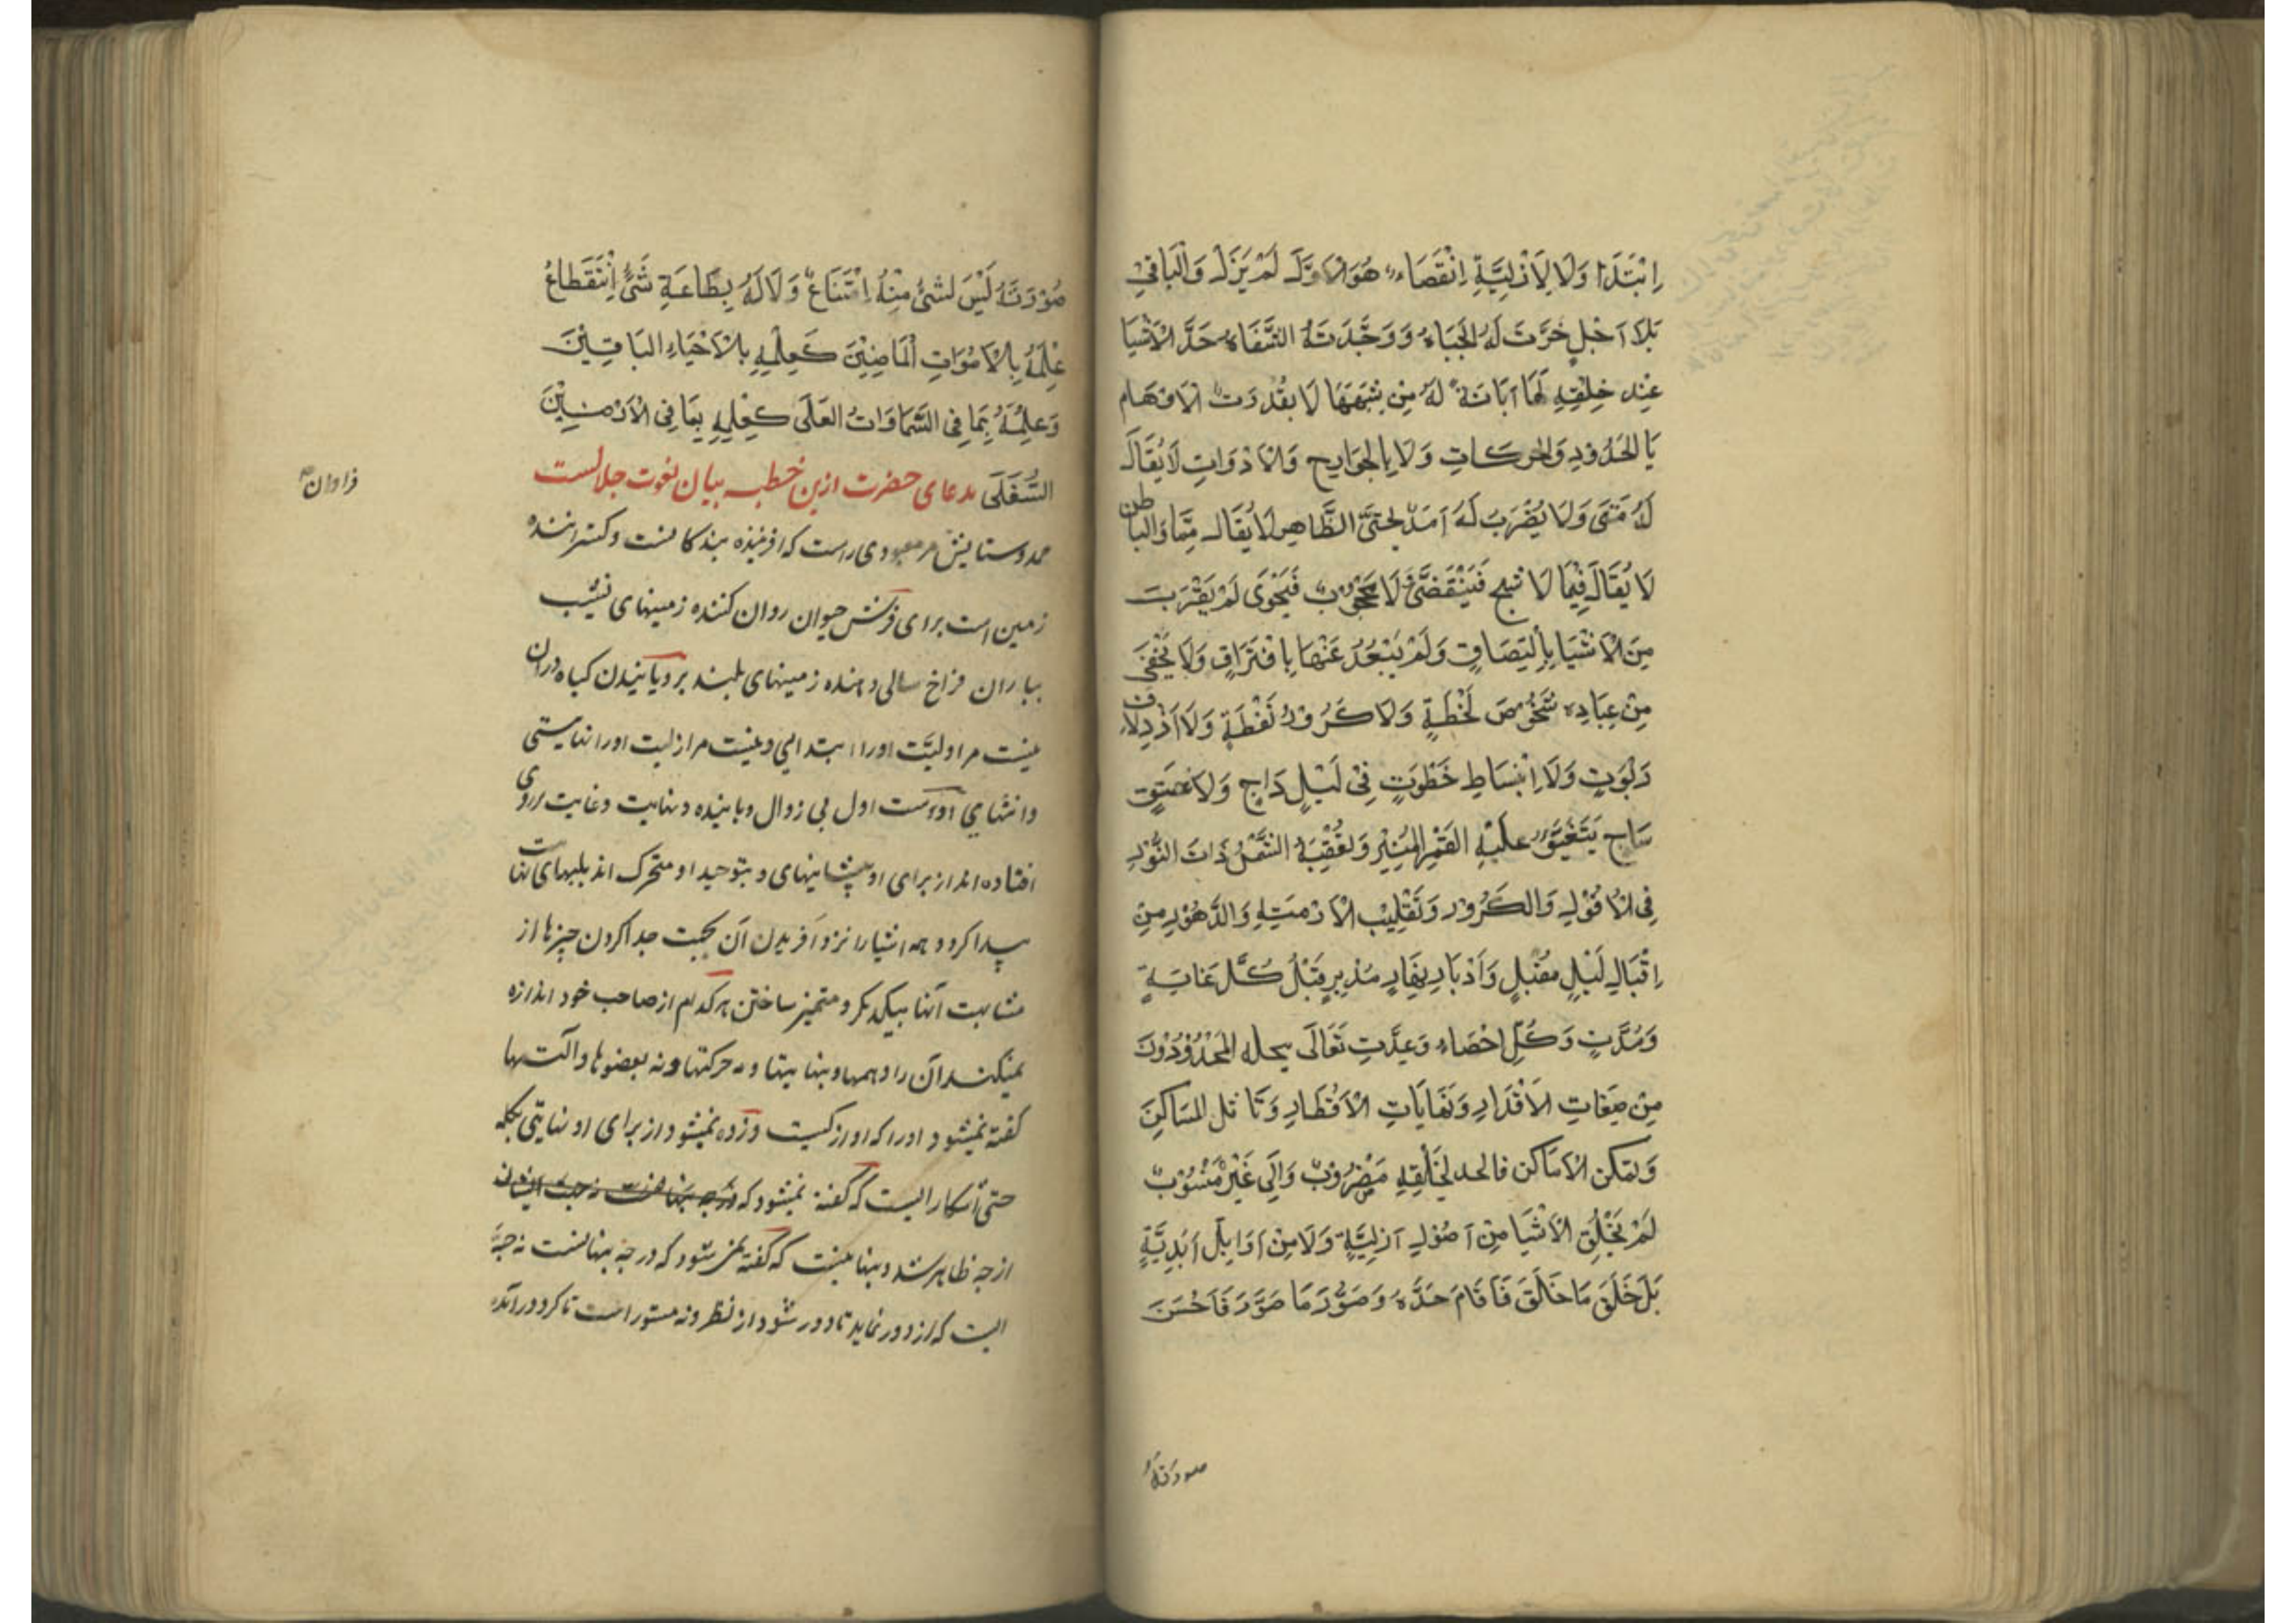 اِبْتَدَاءٌ وَلَا لِاَزَلِيَّةِ اِنْقِضَاءٌ هُوَ الْاَوَّلُ لَمْ يَزَلْ وَالْبَاقِي
بِلَا اَجَلٍ خَرَّتْ لَهُ الْجِبَاهُ وَوَحَّدَتْهُ الشِّفَاهُ حَدَّ الْاَشْيَا
عِنْدَ خَلْقِهِ لَهَا اَبَانَةً لَهُ مِنْ شَبَهِهَا لَا يُقَدِّرُهُ الْاَوْهَام
بِالْحُدُودِ وَالْحَرَكَاتِ وَلَا بِالْجَوَارِحِ وَالْاَدَوَاتِ لَا يُقَالُ
لَهُ مَتَى وَلَا يُضْرَبُ لَهُ اَمَدٌ بِحَتَّى الظَّاهِرُ لَا يُقَالُ مِمَّا وَالْبَاطِنُ
لَا يُقَالُ فِيمَا لَا شَبَحٌ فَيَتَقَضَّى وَلَا مَحْجُوبٌ فَيُحْوَى لَمْ يَقْرُبْ
مِنَ الْاَشْيَا بِالْتِصَاقٍ وَلَمْ يَبْعُدْ عَنْهَا بِافْتِرَاقٍ وَلَا يَخْفَى
مِنْ عِبَادِهِ شُخُوصُ لَحْظَةٍ وَلَا كُرُورُ لَفْظَةٍ وَلَا ازْدِلَافُ
رَبْوَتٍ وَلَا اِنْبِسَاطُ خُطْوَتٍ فِي لَيْلٍ دَاجٍ وَلَا غَسَقٍ
سَاجٍ يَتَفَيَّؤُ عَلَيْهِ الْقَمَرُ الْمُنِيرُ وَتَعْقُبُهُ الشَّمْسُ ذَاتُ النُّورِ
فِي الْاُفُولِ وَالْكُرُورِ وَتَقْلِيبِ الْاَزْمِنَةِ وَالدُّهُورِ مِنْ
اِقْبَالِ لَيْلٍ مُقْبِلٍ وَاَدْبَارِ نَهَارٍ مُدْبِرٍ قَبْلَ كُلِّ غَايَةٍ
وَمُدَّتٍ وَكُلِّ اِحْصَاءٍ وَعِدَّتٍ تَعَالَى يحله الْمُحَدِّدُونَ
مِنْ صِفَاتِ الْاَقْدَارِ وَنَهَايَاتِ الْاَقْطَارِ وَتَاثل الْمَسَاكِنِ
وَتمكن الْاَمَاكن فالحد لِخَلْقِهِ مَضْرُوبٌ وَاِلَى غَيْرِهِ مَنْسُوبٌ
لَمْ يَخْلُقِ الْاَشْيَا مِنْ اُصُولٍ اَزَلِيَّةٍ وَلَا مِنْ اَوَايِلَ اَبَدِيَّةٍ
بَلْ خَلَقَ مَا خَلَقَ فَاَقَامَ حَدَّهُ وَصَوَّرَ مَا صَوَّرَ فَاَحْسَنَ
صورته
صُوْرَتَهُ لَيْسَ لِشَيْءٍ مِنْهُ اِمْتِنَاعٌ وَلَا لَهُ بِطَاعَةِ شَيْءٍ اِنْتِفَاعٌ
عِلْمُهُ بِالْاَمْوَاتِ الْمَاضِيْنَ كَعِلْمِهِ بِالْاَحْيَاءِ الْبَاقِيْنَ
وَعِلْمُهُ بِمَا فِي السَّمَاوَاتِ الْعُلَى كَعِلْمِهِ بِمَا فِي الْاَرَضِيْنَ
السُّفْلَى مدعای حضرت ازین خطبه بیان نعوت جلالست
فراوان
حمد وستایش مر معبودی راست که افریننده بندکانست وکستراننده
زمین است برای فرش حیوان روان کننده زمینهای نشیب
بباران فراخ سالی دهنده زمینهای بلند برویانیدن کیاه دران
نیست مر اولیّت اورا ابتدایی ونیست مر ازلیت اورا نهایتی
وانتهایی اوست اول بی زوال وپاینده ونهایت وغایت برروی
افتاده اند از برای او پیشانیهای وبتوحید او متحرک اند بلبهای
پیدا کرد وحد اشیا را نزد آفریدن آن بجهت جدا کردن چیزها از
مشابهت آنها بیکدیکر ومتمیز ساختن هر کدام از صاحب خود اندازه
نمیکند آن را وهمها وبنهایتها وبه حرکتها ونه بعضوها والتها
کفته نمیشود اورا که او از کیست وزده نمیشود از برای او نهایتی بکلمه
حتی آشکاراییست که کفته نمیشود که
از چه ظاهر شد وپنهانیست که کفته نمیشود که در چه پنهانست نه جثّه
ایست که از دور نماید تا دور شود از نظر ونه مستور است تا کرد درآمده